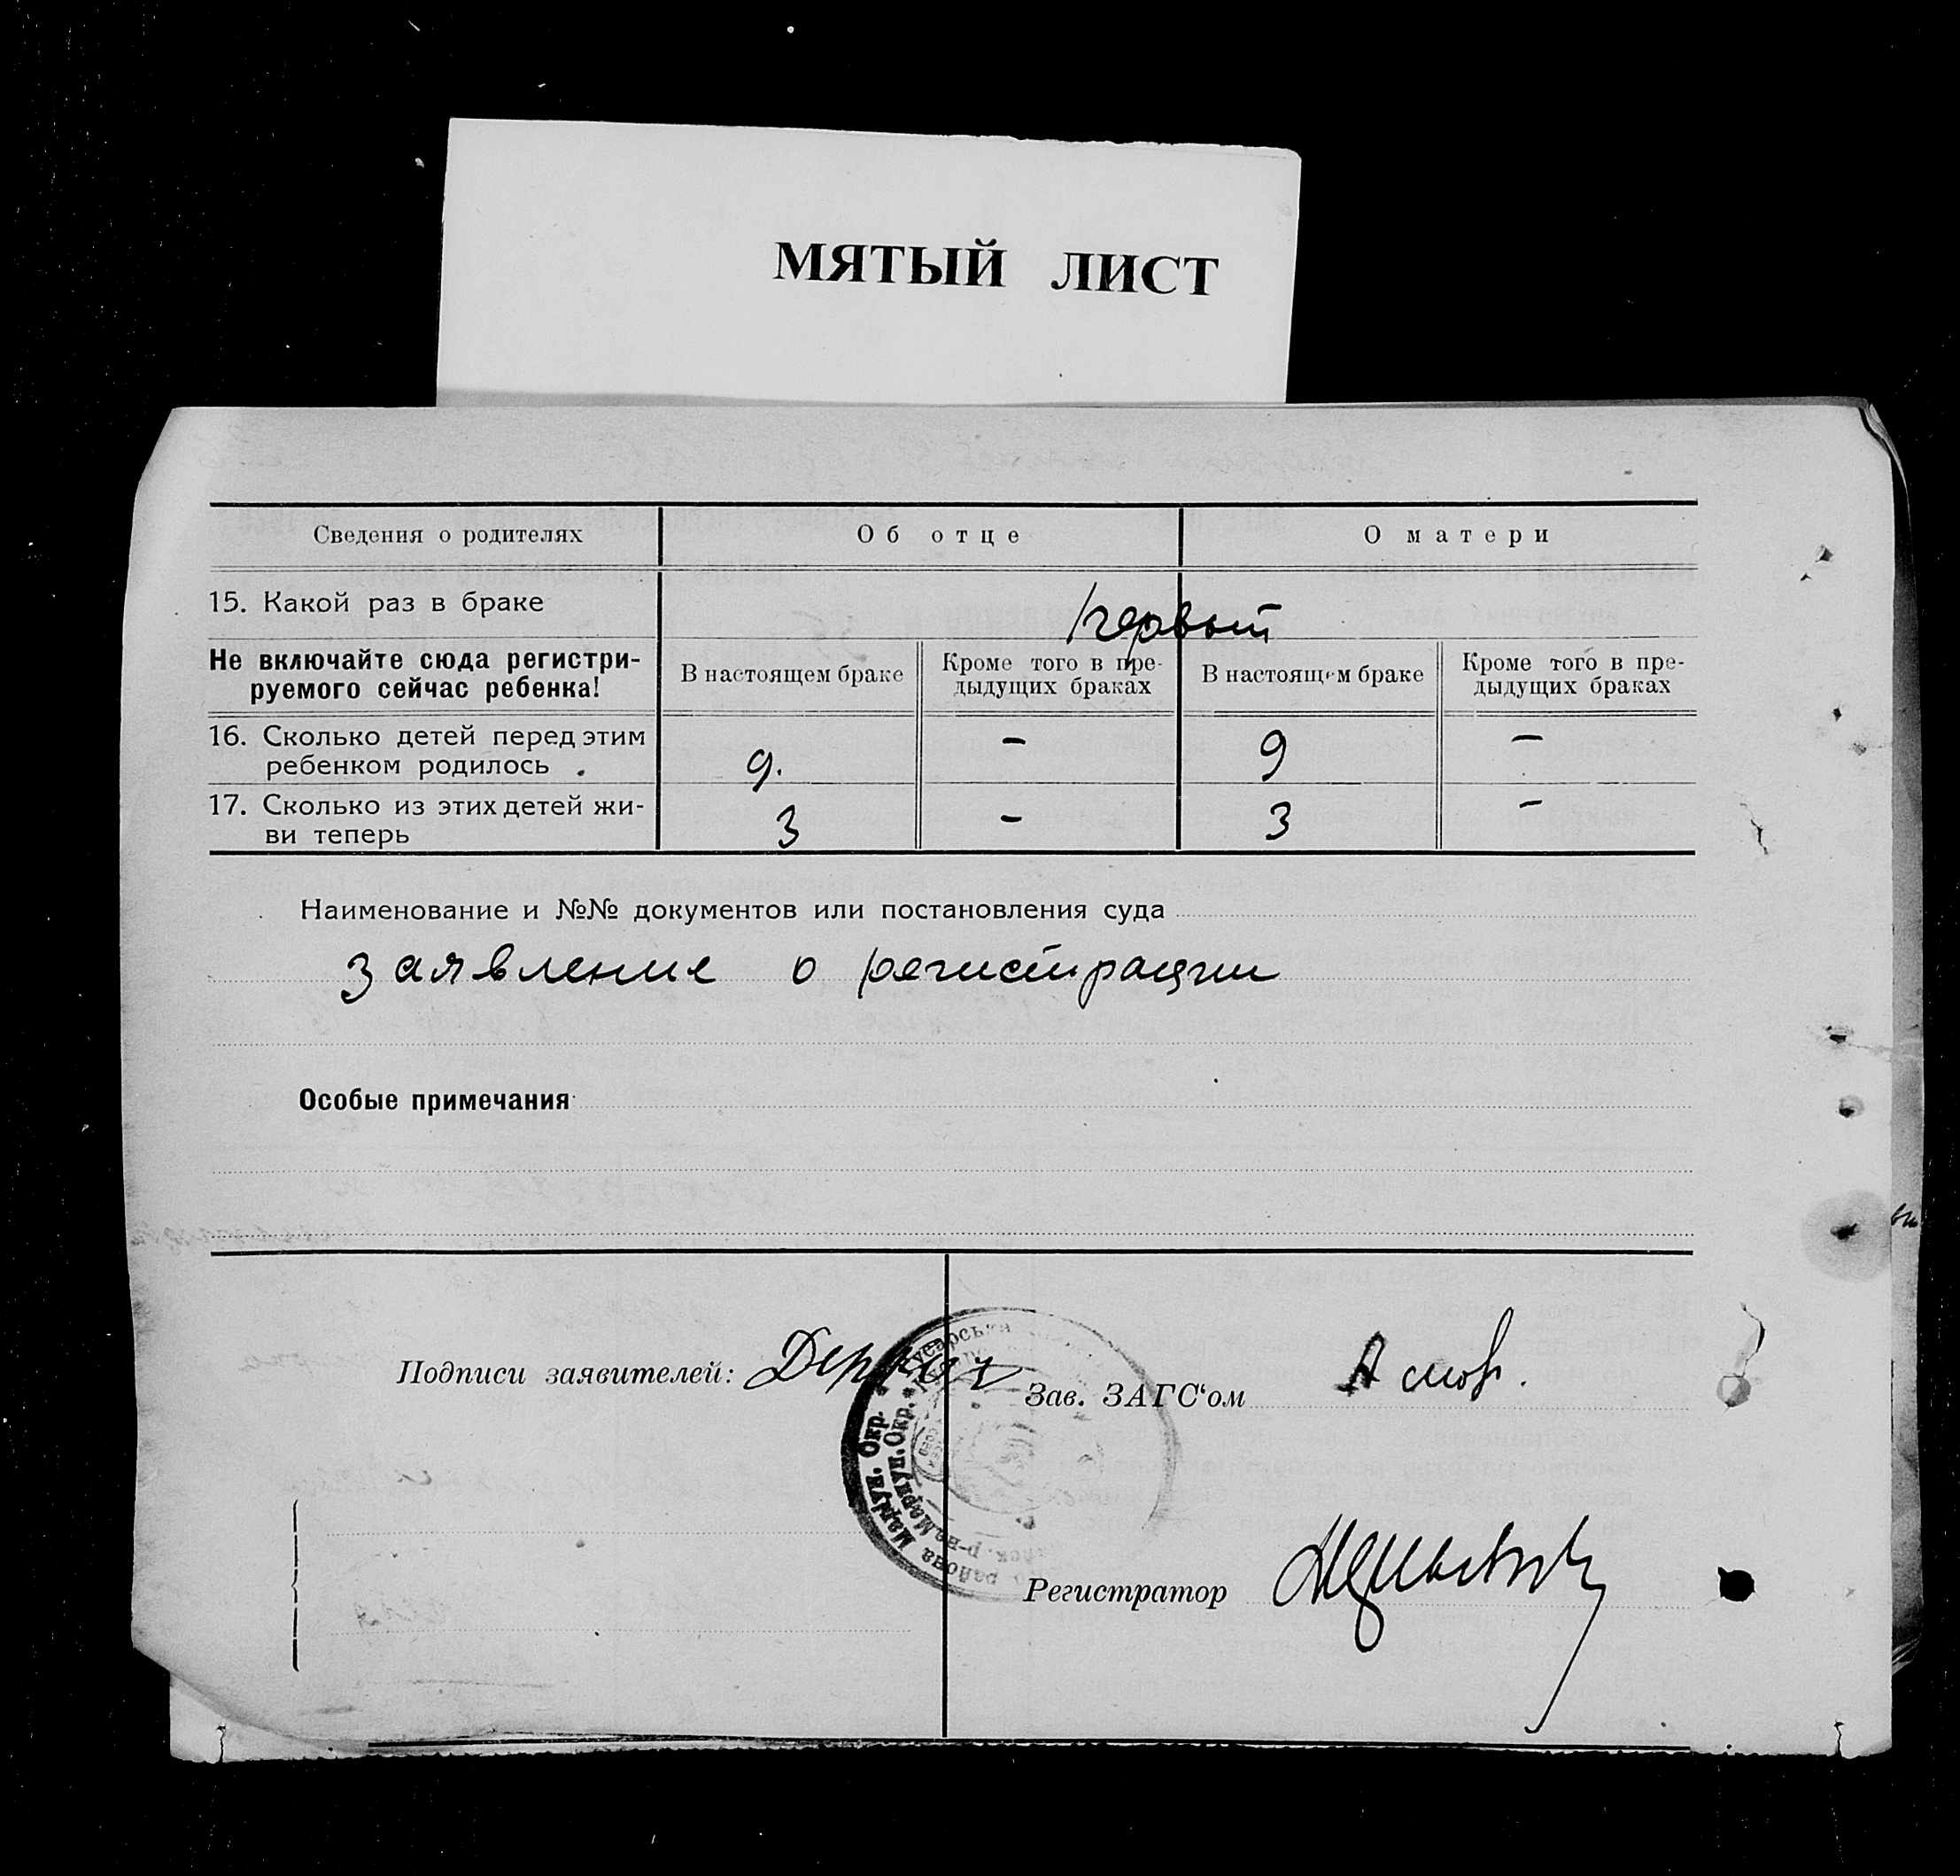 МЯТЫЙ ЛИСТ
Сведения о родителях Об отце О матери
15. Какой раз в браке первый
Не включайте сюда регистри-
руемого сейчас ребенка!
В настоящем браке
Кроме того в пре-
дыдущих браках
В настоящем браке
Кроме того в пре-
дыдущих браках
16. Сколько детей перед этим
ребенком родилось 9. – 9 –
17. Сколько из этих детей жи-
ви теперь 3 – 3 –
Наименование и №№ документов или постановления суда
заявление о регистрации
Особые примечания
Подписи заявителей:
Зав. ЗАГС‘ом
района Мариуп. Окр.
р-на Мариуп. Окр.
Регистратор